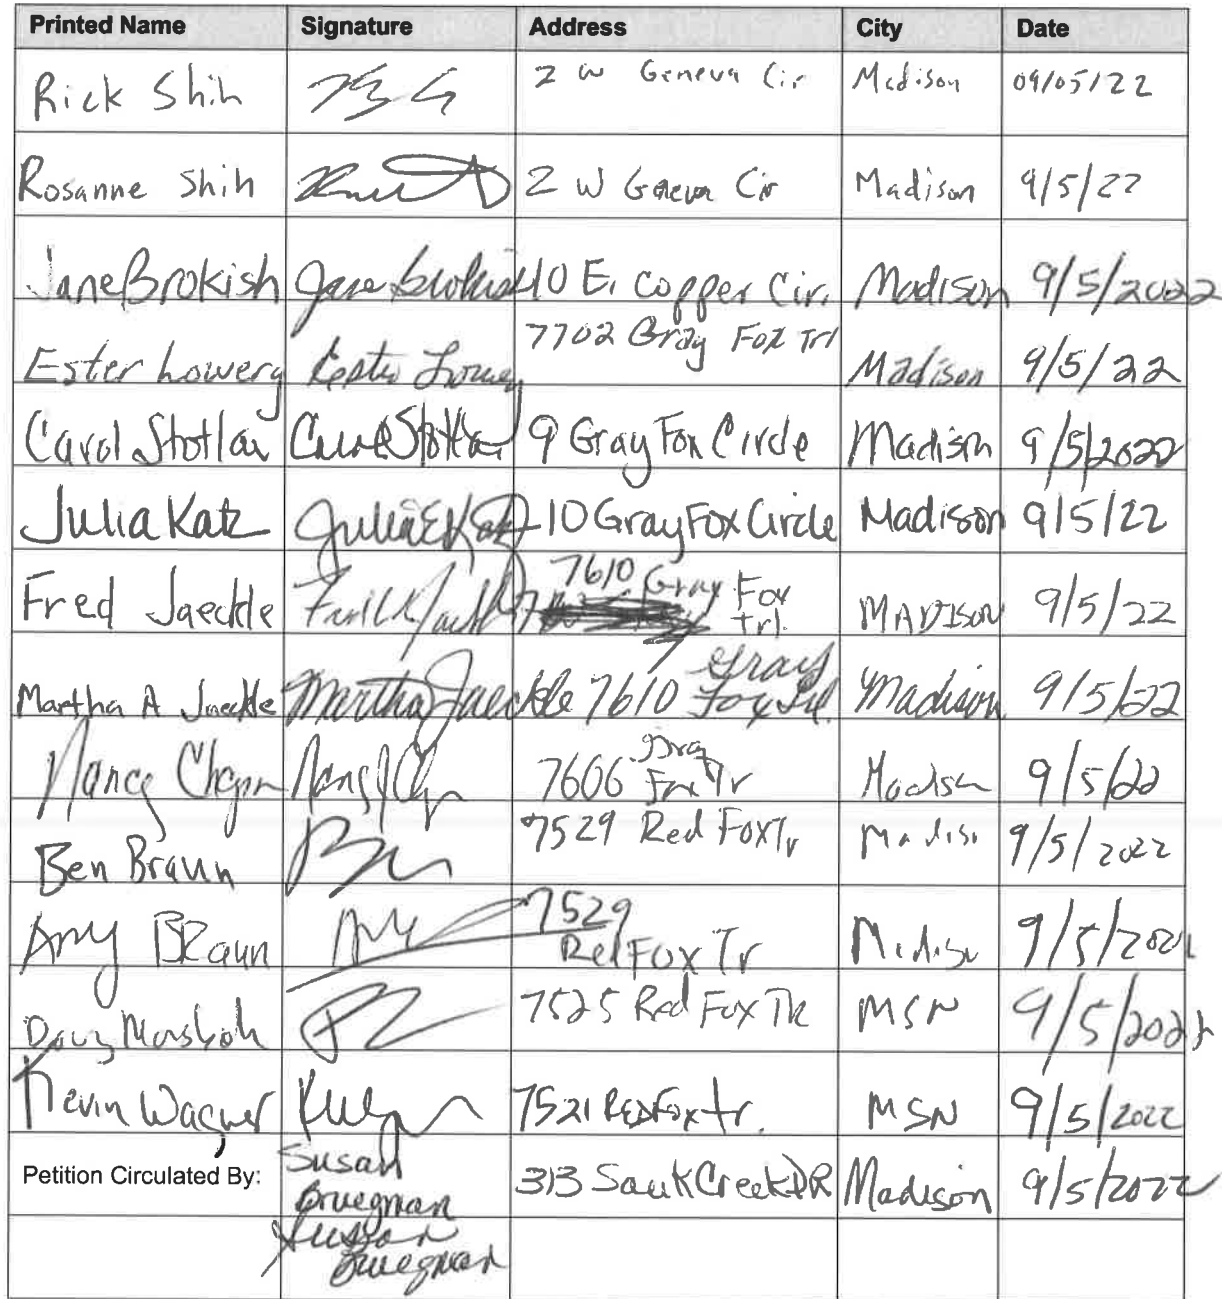 Printed Name Signature Address City Date
Rick Shih 2 W Geneva Cir Madison 09/05/22
Rosanne Shih 2 W Geneva Cir Madison 9/5/22
Jane Brokish Jane Brokish 10 E. Copper Cir. Madison 9/5/2022
Ester Lowery Ester Lowery 7702 Gray Fox Trl Madison 9/5/22
Carol Stotlar Carol Stotlar 9 Gray Fox Circle Madison 9/5/2022
Julia Katz Julia E Katz 10 Gray Fox Circle Madison 9/5/22
Fred Jaeckle 7610 Gray Fox Trl. MADISON 9/5/22
Martha A Jaeckle Martha Jaeckle 7610 Gray Fox Trl. Madison 9/5/22
Nancy 7606 Gray Fox Tr Madison 9/5/22
Ben Braun 7529 Red Fox Tr Madiso 9/5/2022
Amy BRaun 7529 Red Fox Tr Madiso 9/5/2022
Doug 7525 Red Fox TR MSN 9/5/2022
Kevin Wagner 7521 RED Fox tr. MSN 9/5/2022
Petition Circulated By: Susan Bruegman 313 Sauk Creek DR Madison 9/5/2022
Susan Bruegman